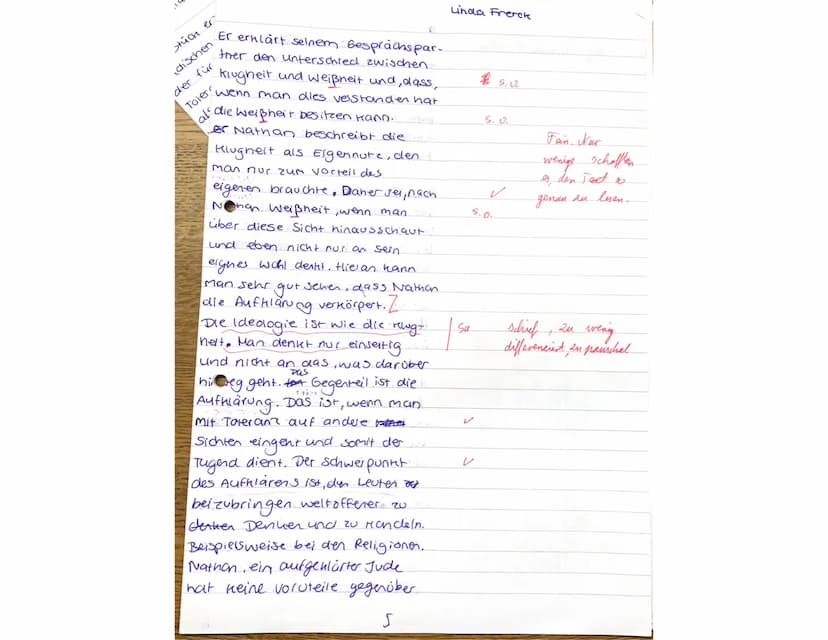 Linda Frerck
stück er
dischen
der für
Toler
als
Er erklärt seinem Gesprächspar-
tner den Unterschied zwischen
Klugheit und Weißheit und, dass,
s.o.
wenn man dies verstanden hat
die Weißheit besitzen kann.
s.o.
er Nathan beschreibt die
Klugheit als Eigennutz, den
man nur zum Vorteil des
eigenen brauchte. Daher sei, nach
✓
Fein. Nur
wenige schaffen
es, den Text so
genau zu lesen.
Nathan. Weißheit, wenn man
s.o.
über diese Sicht hinausschaut
und eben nicht nur an sein
eignes Wohl denkt. Hieran kann
man sehr gut sehen, dass Nathan
die Aufklärung verkörpert. Z
Die Ideologie ist wie die Klug-
Sa schief, zu wenig
heit. Man denkt nur einseitig
differenziert, zu pauschal
und nicht an das, was darüber
hinweg geht. Das Gegenteil ist die
Aufklärung. Das ist, wenn man
mit Toleranz auf andere
✓
Sichten eingeht und somit der
Tugend dient. Der Schwerpunkt
✓
des Aufklärens ist, den Leuten
beizubringen weltoffener zu
denken Denken und zu Handeln.
Beispielsweise bei den Religionen.
Nathan, ein aufgeklärter Jude
hat keine Vorurteile gegenüber
5